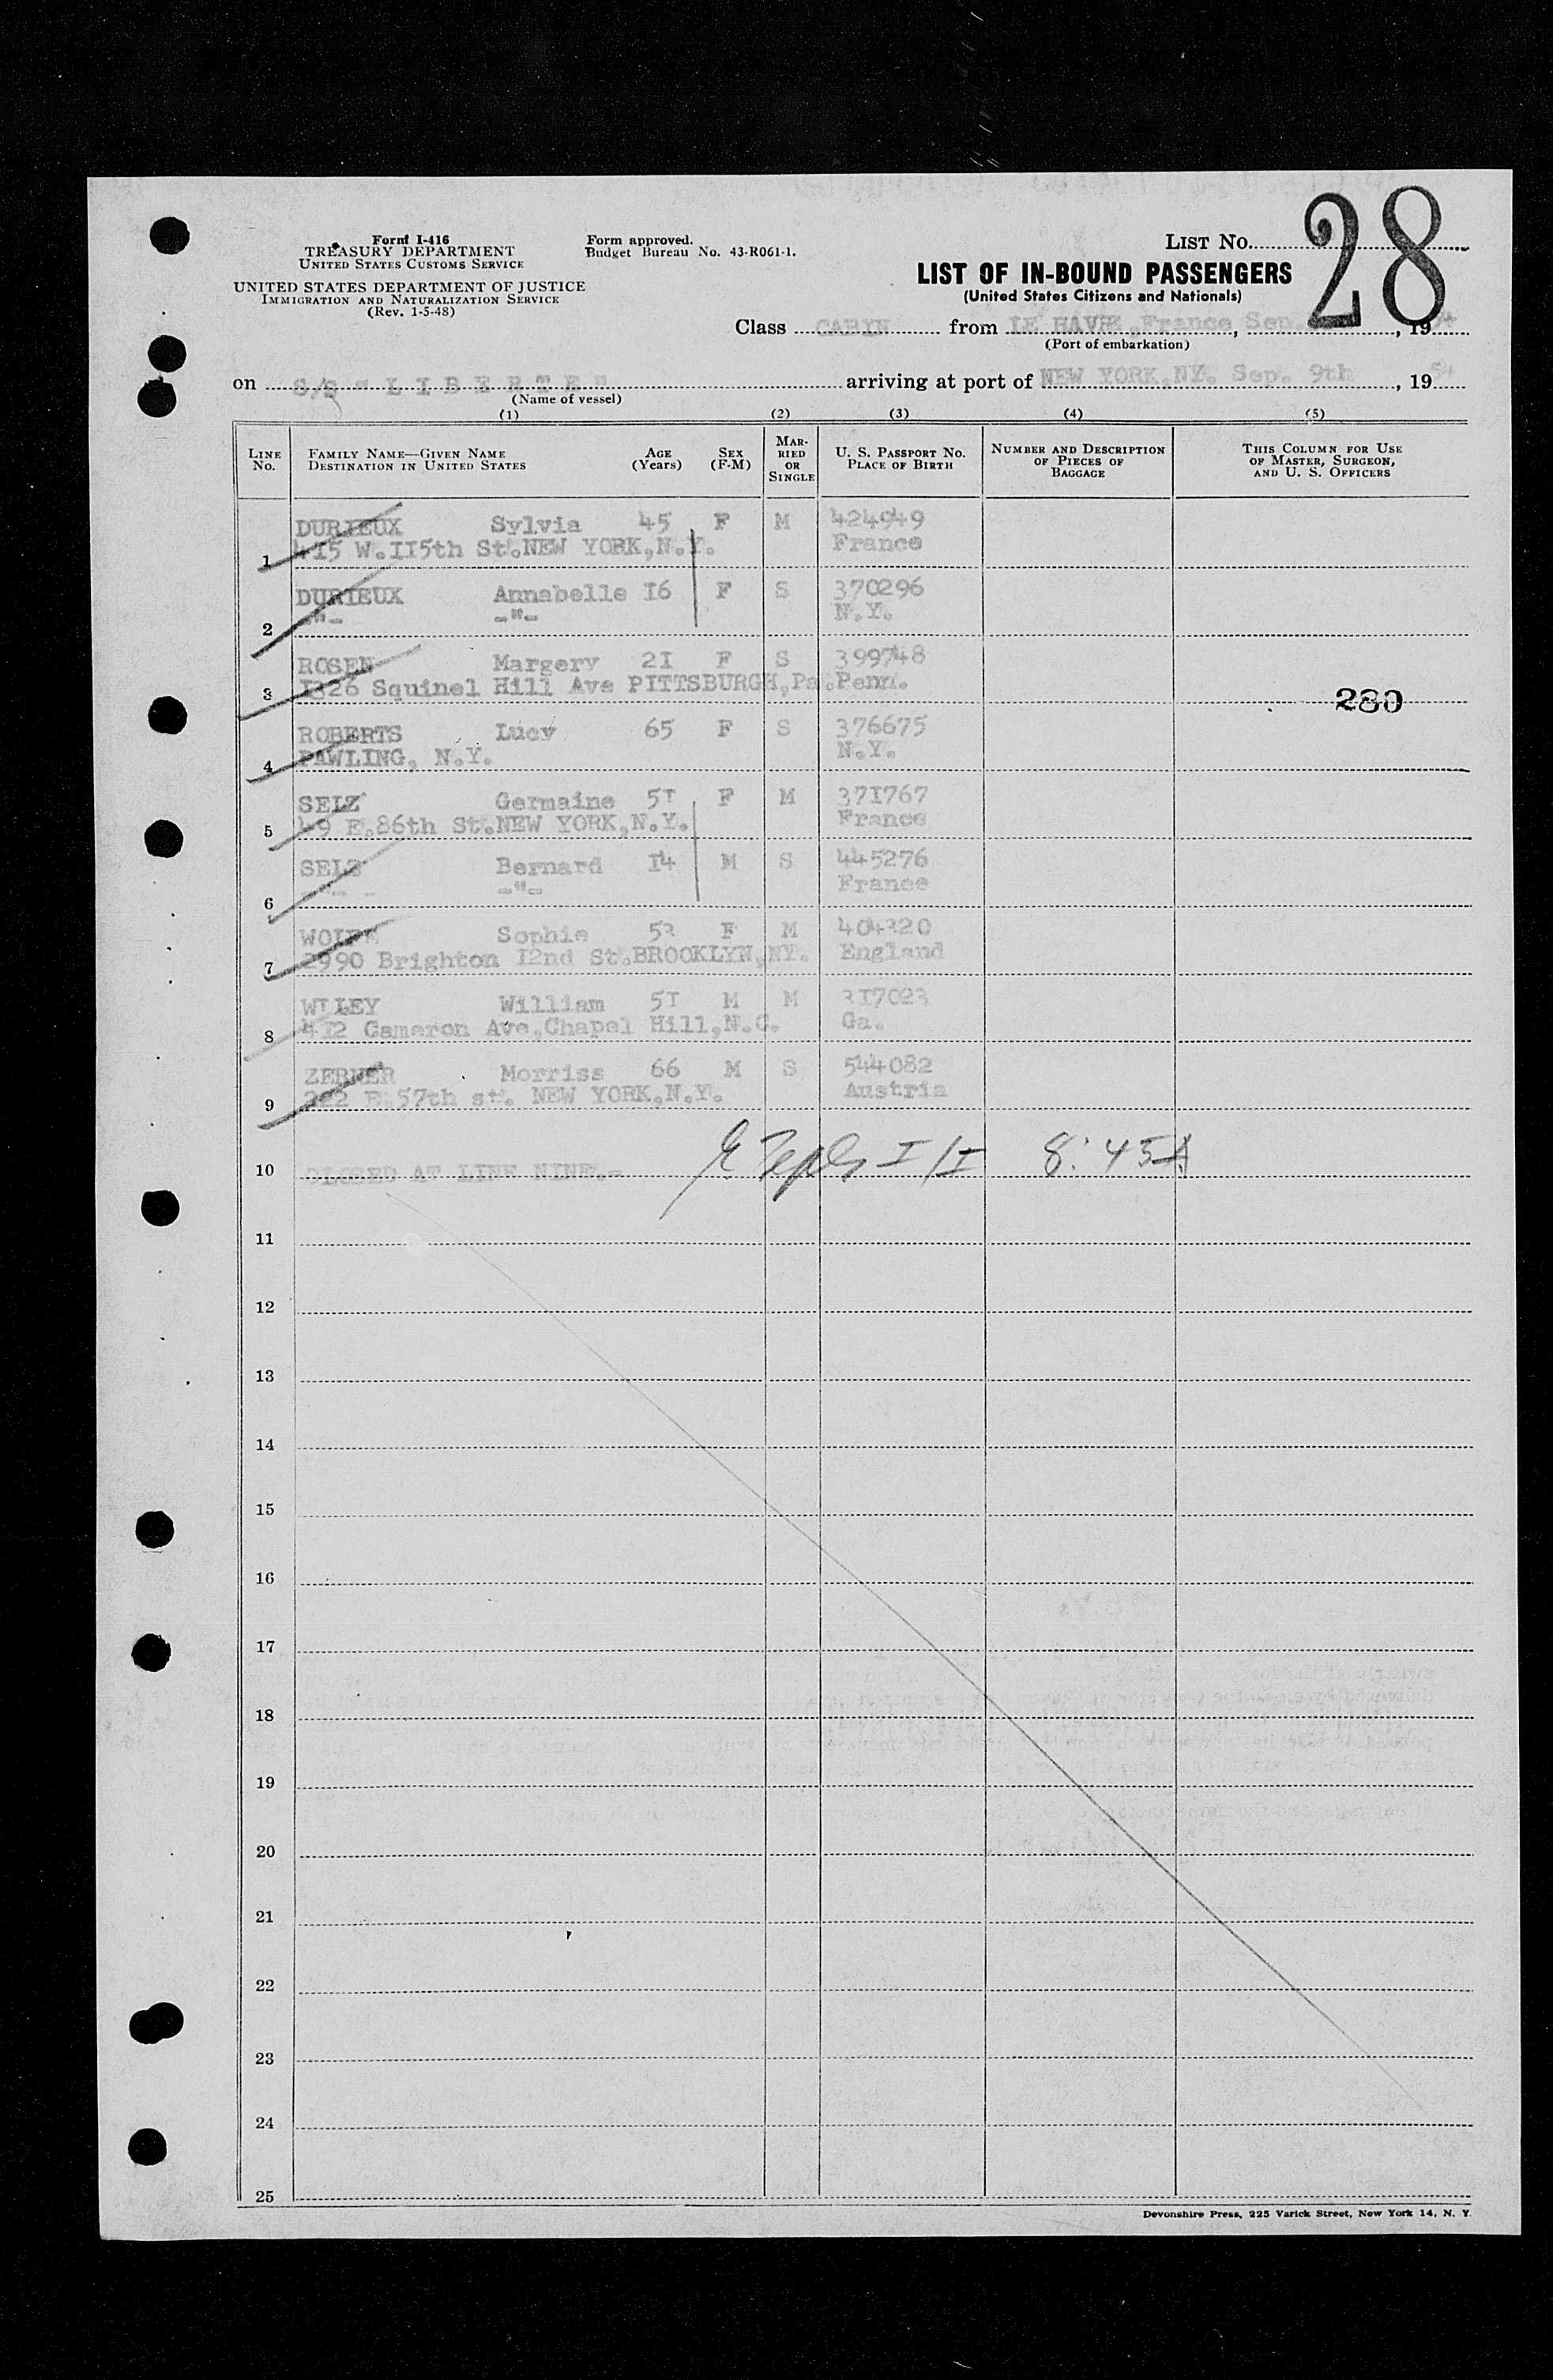 Form I-416
TREASURY DEPARTMENT
UNITED STATES CUSTOMS SERVICE
UNITED STATES DEPARTMENT OF JUSTICE
IMMIGRATION AND NATURALIZATION SERVICE
(Rev. 1-5-48)
Form approved.
Budget Bureau No. 43-R061-1.
LIST NO. 28
LIST OF IN-BOUND PASSENGERS
(United States Citizens and Nationals)
Class CABIN from LE HAVRE, France Sep. , 1954
(Port of embarkation)
on S/S " LIBERTE " arriving at port of NEW YORK,NY. Sep. 9th , 19 54
(Name of vessel)
(1) (2) (3) (4) (5)
LINE NO. FAMILY NAME—GIVEN NAME DESTINATION IN UNITED STATES AGE (Years) SEX (F-M) MARRIED OR SINGLE U. S. PASSPORT NO. PLACE OF BIRTH NUMBER AND DESCRIPTION OF PIECES OF BAGGAGE THIS COLUMN FOR USE OF MASTER, SURGEON, AND U. S. OFFICERS
DURIEUX Sylvia 45 F M 424949
1 415 W.II5th St.NEW YORK,N.Y. France
DURIEUX Annabelle I6 F S 370296
2 -"- -"- N.Y.
ROSEN Margery 2I F S 399748
3 I326 Squinel Hill Ave PITTSBURGH,Pa. Penn. 280
ROBERTS Lucy 65 F S 376675
4 PAWLING, N.Y. N.Y.
SELZ Germaine 5I F M 37I767
5 49 E.86th St.NEW YORK,N.Y. France
SELZ Bernard I4 M S 445276
6 -"- -"- France
WOLPE Sophie 53 F M 404320
7 2990 Brighton I2nd St.BROOKLYN,NY. England
WILEY William 5I M M 3I7023
8 4I2 Cameron Ave,Chapel Hill,N.C. Ga.
ZERNER Morriss 66 M S 544082
9 322 E.57th st. NEW YORK,N.Y. Austria
10 CLOSED AT LINE NINE.- I/I 8:45A
11
12
13
14
15
16
17
18
19
20
21
22
23
24
25
Devonshire Press, 225 Varick Street, New York 14, N. Y.